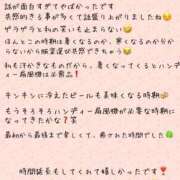 話が面白すぎてやばかったです
共感的きる事が多くて話盛り上がりましたね😆
ゲラゲラと和の笑いも止まらない🤣
ほんとこの時期は暑くなるのか、寒くなるのか分か
らないから服装選び共感できちゃう😂
和も汗かきなものだから、暑くなってくるとハンディ
ー扇風機は必需品❗
キンキンに冷えたビールも美味くなる時期🍻
もうそろそろハンディー扇風機が必要な時期になっ
てきたかな❓笑
最初から最後まで楽しくて、癒された時間でした🍀
時間延長もしてくれて嬉しかったです❣